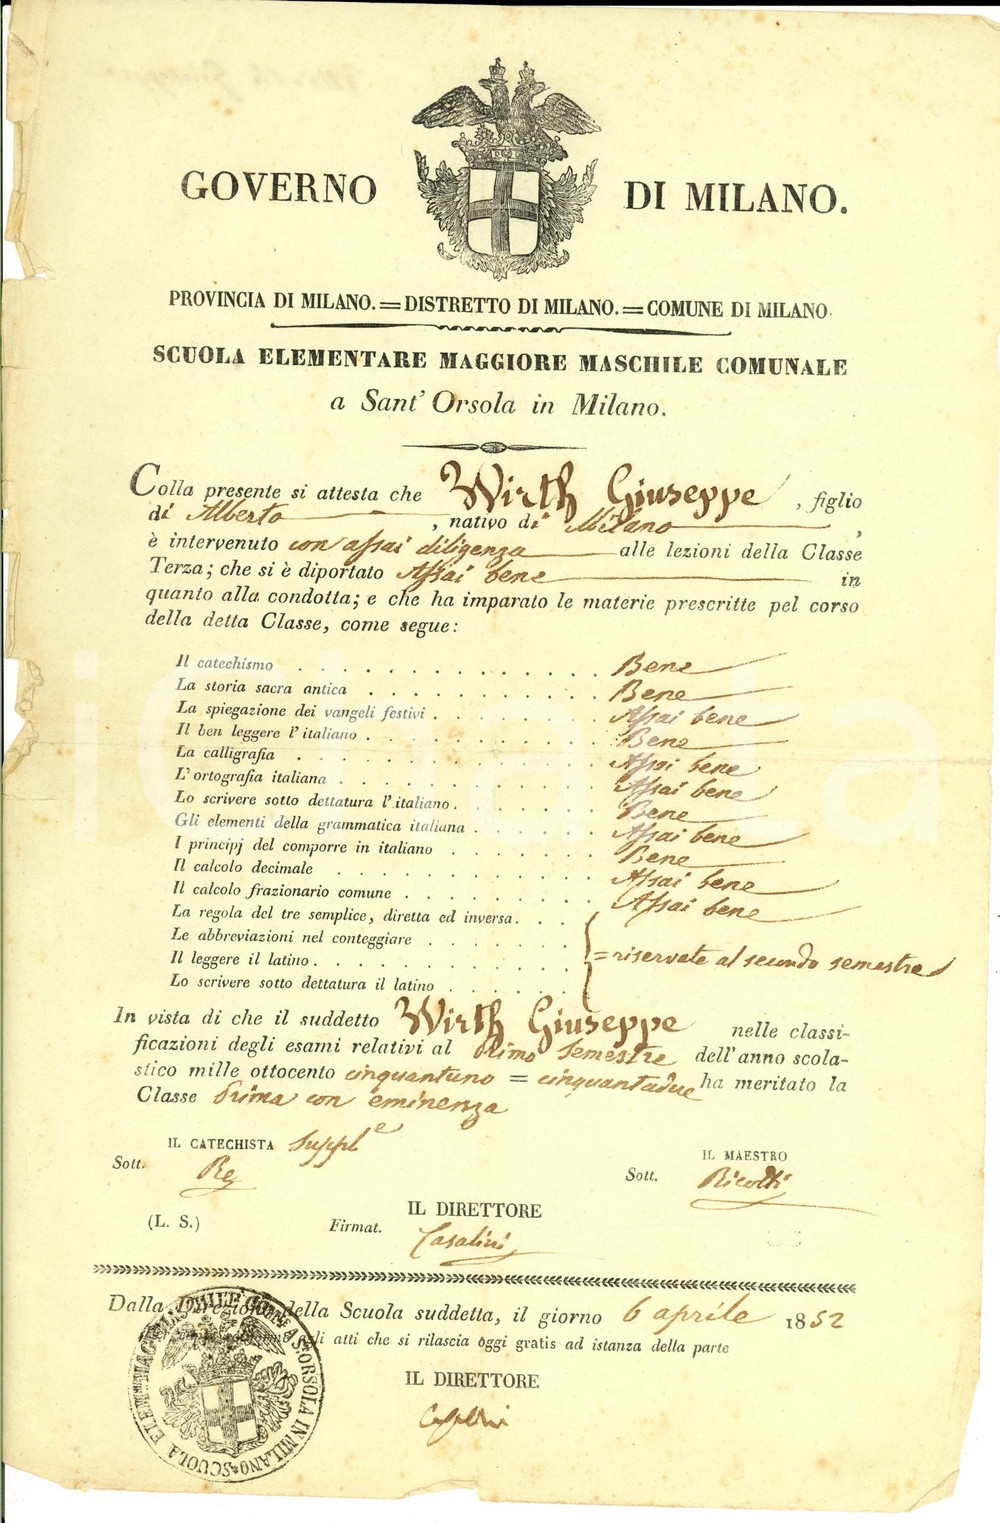 GOVERNO DI MILANO.
PROVINCIA DI MILANO.=DISTRETTO DI MILANO.=COMUNE DI MILANO.
SCUOLA ELEMENTARE MAGGIORE MASCHILE COMUNALE
a Sant' Orsola in Milano.
Colla presente si attesta che Wirth Giuseppe, figlio
di Alberto, nativo di Milano,
è intervenuto con assai diligenza alle lezioni della Classe
Terza; che si è diportato Assai bene in
quanto alla condotta; e che ha imparato le materie prescritte pel corso
della detta Classe, come segue:
Il catechismo . . . . . . . . . . . . Bene
La storia sacra antica . . . . . . . . . Bene
La spiegazione dei vangeli festivi . . . . . . . Assai bene
Il ben leggere l'italiano . . . . . . . . . Bene
La calligrafia . . . . . . . . . . . . Assai bene
L'ortografia italiana . . . . . . . . . . Assai bene
Lo scrivere sotto dettatura l'italiano . . . . . . Bene
Gli elementi della grammatica italiana . . . . . Assai bene
I principj del comporre in italiano . . . . . . Bene
Il calcolo decimale . . . . . . . . . . Assai bene
Il calcolo frazionario comune . . . . . . . . Assai bene
La regola del tre semplice, diretta ed inversa . . .
Le abbreviazioni nel conteggiare . . . . . . .
Il leggere il latino . . . . . . . . . . = riservate al secondo semestre
Lo scrivere sotto dettatura il latino . . . . . .
In vista di che il suddetto Wirth Giuseppe nelle classi-
ficazioni degli esami relativi al Primo semestre dell'anno scola-
stico mille ottocento cinquantuno = cinquantadue ha meritato la
Classe Prima con eminenza
IL CATECHISTA Suppl.e
IL MAESTRO
Sott. Re
Sott. Ricotti
IL DIRETTORE
(L. S.) Firmat. Casalini
Dalla Direzione della Scuola suddetta, il giorno 6 aprile 1852
gli atti che si rilascia oggi gratis ad istanza della parte
IL DIRETTORE
Casalini
SCUOLA ELEM. MAG. MASCHILE COM. A S. ORSOLA IN MILANO